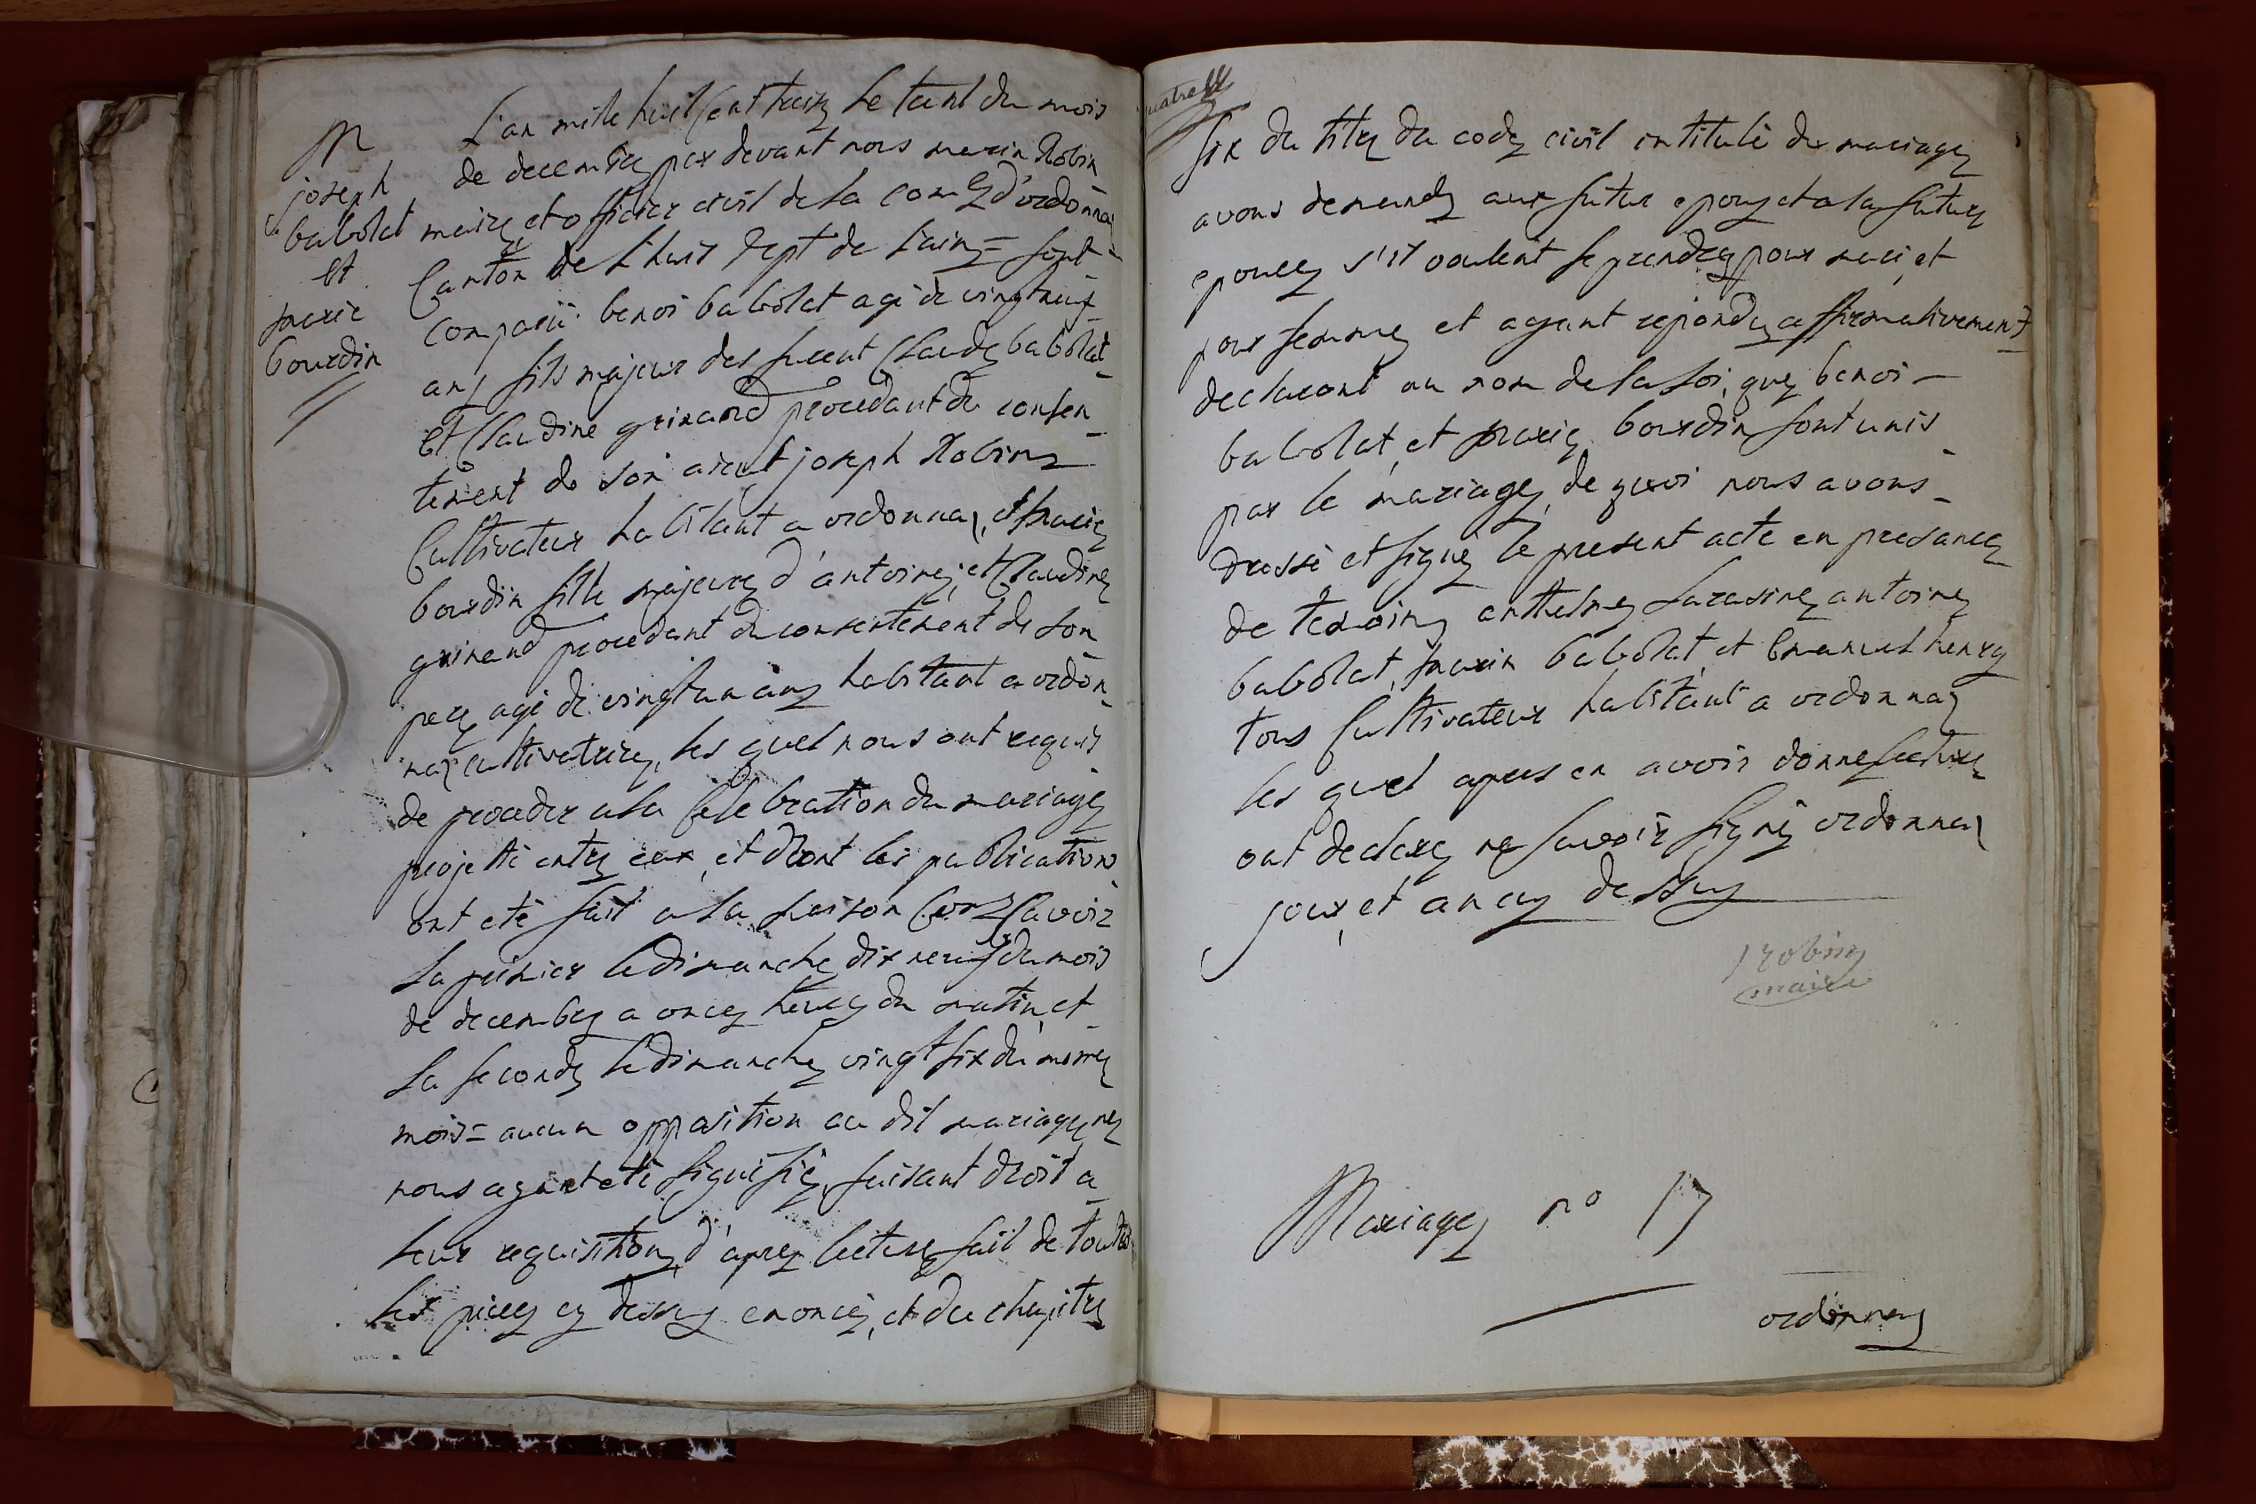 M
joseph
babolat
et
marie
bourdin
L'an mille huit cent treiz le tent du mois
de decembre par devant nous marin Robin
maire et officier civil de la com d'ordonna
Canton de Lhuis dept de L'ain = sont
comparu benoi babolat agé de vingt neuf
ans fils majeur des furent Claude babolat
et Claudine guinand procedant du consen
tement de son aieut joseph Robin
Cultivateur habitant a ordonnas, et marie
bourdin fille majeure d'antoine, et Claudine
guinand procedant du consentement de son
pere agé de vingt un ans habitant a ordon
nas cultivatrice, les quel nous ont requis
de proceder a la Celebration du mariage
projetté entre eux, et dont les publication
ont eté fait a la maison Com Savoir
La premier le dimanche dix neuf du mois
de decembre a onze heure du matin, et
La seconde le dimanche vingt six du meme
mois = aucun opposition au dit mariage ne
nous ayant eté signifié, faisant droit a
leur requisition, d'apres lecture fait de toutes
les pieces cy dessus enoncé, et du chapitre
six du titre du code civil intitulé du mariage
avons demendé aux futur epoux et a la future
epouse s'il voulent se prendre pour mari, et
pour femme et ayant repondu affirmativement
declaront au nom de la loi, que benoi
babolat, et marie bourdin sont unis
par le mariage, de quoi nous avons
dressé et signé le present acte en presance
de temoins anthelme Sarasine, antoine
babolat, marin babolat, et Emanuel henry
tous Cultivateur habitant a ordonnas
les quel apres en avoir donné lecture
ont declaré ne savoir signé ordonnas
jour, et an cy dessus
Robin
maire
Mariage n° 17
ordonnas